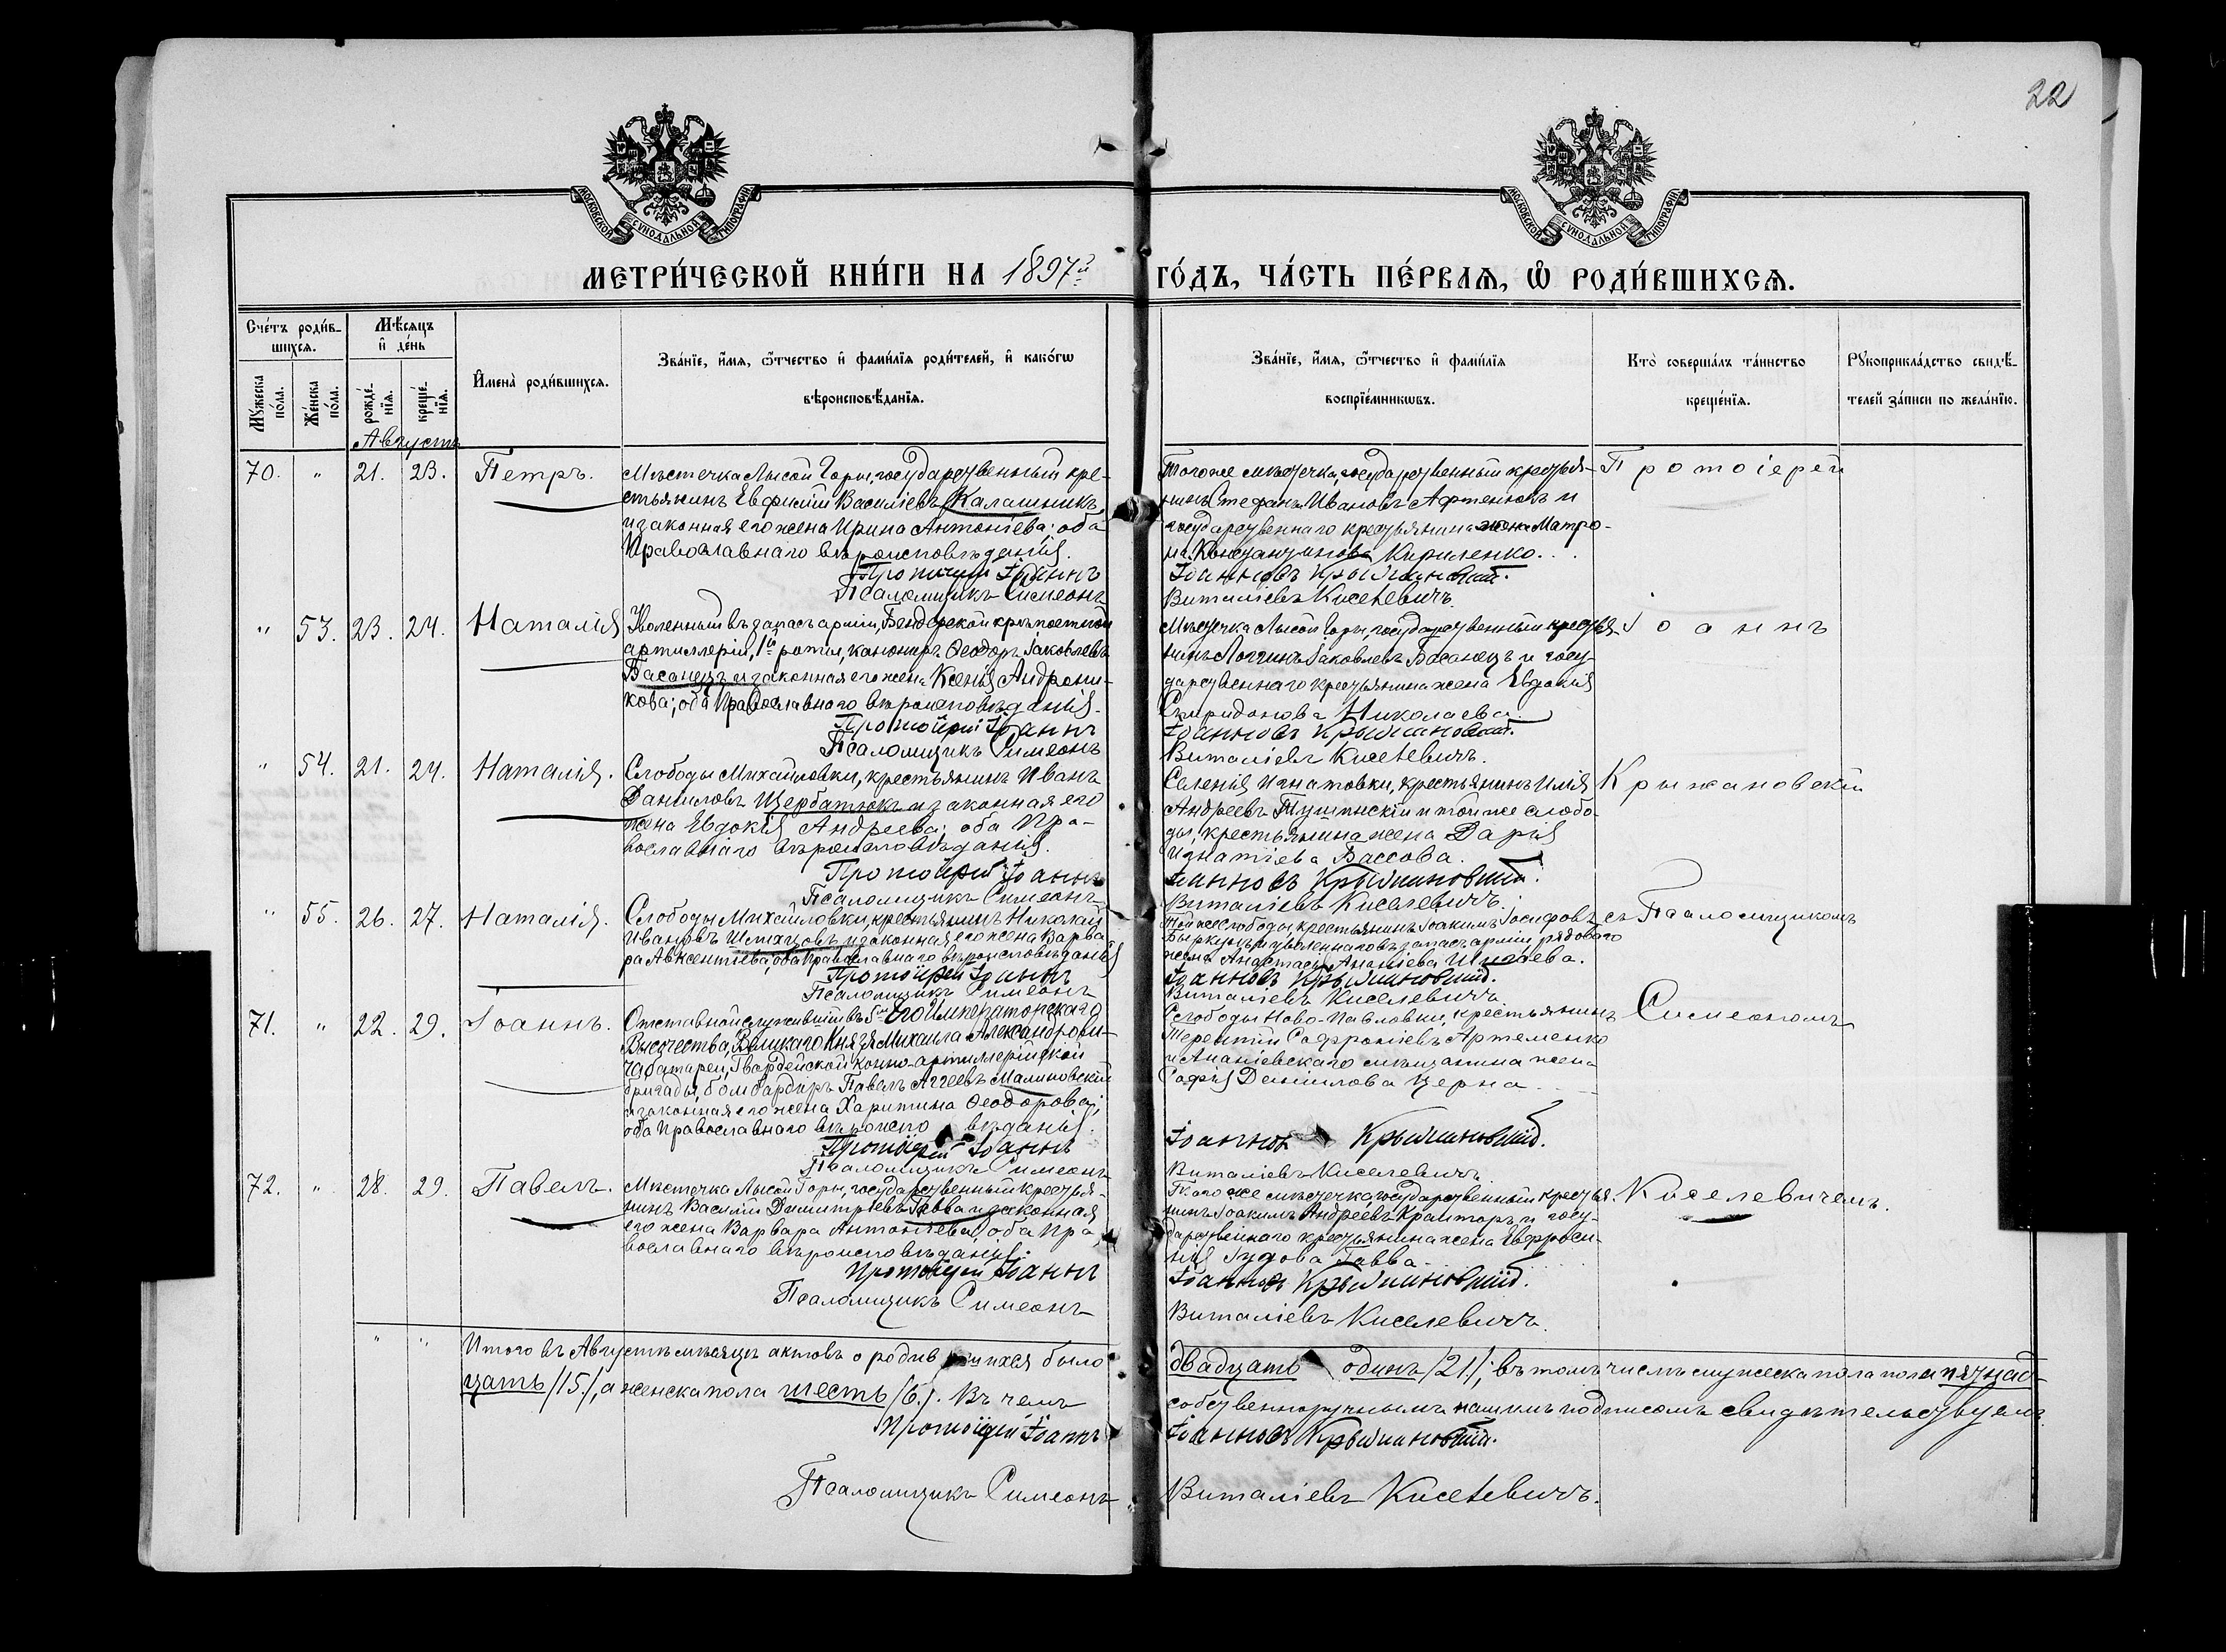 22
МОСКОВСКОЙ СѴНОДАЛЬНОЙ ТИПОГРАФІИ
МОСКОВСКОЙ СѴНОДАЛЬНОЙ ТИПОГРАФІИ
МЕТРИ́ЧЕСКОЙ КНИ́ГИ НА 1897й ГО́ДЪ, ЧА́СТЬ ПЕ́РВАѦ, Ѿ РОДИ́ВШИХСѦ.
Сче́тъ роди́в-
шихсѧ.
Мѣ́сяцъ
и де́нь
Мꙋжеска по́ла.
Же́нска по́ла.
рожде́-
нїѧ.
креще́-
нїѧ.
Имена̀ роди́вшихсѧ.
Зва́нїе, и́мѧ, ѻ҆́тчество и фами́лїѧ роди́телей, и како́гѡ
вѣроисповѣ́данїѧ.
Зва́нїе, и́мѧ, ѻ҆́тчество и фами́лїѧ
воспрїе́мникѡвъ.
Кто̀ соверша́лъ та́инство
креще́нїѧ.
Рꙋкоприкла́дство свидѣ́-
телей за́писи по жела́нїю.
Августъ
70. " 21. 23. Петръ.
Мѣстечка Лысой Горы, государственный кре-
стьянинъ Евфимій Василіевъ Калашникъ,
и законная его жена Ирина Антоніева; оба
Православнаго вѣроисповѣданія.
Протоіерей Іоаннъ
Псаломщикъ Симеонъ
Того же мѣстечка, государственный крестья-
нинъ Стефанъ Ивановъ Афтенюкъ и
государственнаго крестьянина жена Матро-
на Константинова Кириленко.
Іоанновъ Крыжановскій.
Виталіевъ Киселевичъ.
Протоіерей
" 53. 23. 24. Наталія
Уволенный въ запасъ арміи, Бендерской крѣпостной
артиллеріи, 1й роты, канониръ Ѳеодоръ Іаковлевъ
Басанецъ и законная его жена Ксенія Андрони-
кова; оба Православнаго вѣроисповѣданія.
Протоіерей Іоаннъ
Псаломщикъ Симеонъ
Мѣстечка Лысой Горы, государственный крестья-
нинъ Логгинъ Іаковлевъ Басанецъ и госу-
дарственнаго крестьянина жена Евдокія
Спиридонова Николаева.
Іоанновъ Крыжановскій.
Виталіевъ Киселевичъ.
Іоаннъ
" 54. 21. 24. Наталія.
Слободы Михайловки, крестьянинъ Иванъ
Даніиловъ Щербатюкъ и законная его
жена Евдокія Андреева; оба Пра-
вославнаго вѣроисповѣданія.
Протоіерей Іоаннъ
Псаломщикъ Симеонъ
Селенія Игнатовки, крестьянинъ Илія
Андреевъ и той же слобо-
ды, крестьянина жена Дарія
Игнатіева Бассова.
Іоанновъ Крыжановскій.
Виталіевъ Киселевичъ.
Крыжановскій
" 55. 26. 27. Наталія.
Слободы Михайловки, крестьянинъ Николай
Ивановъ и законная его жена Варва
ра Авксентіева; оба Православнаго вѣроисповѣданія
Протоіерей Іоаннъ
Псаломщикъ Симеонъ
Той же слободы, крестьянинъ Іоакимъ Іосифовъ
и уволеннаго въ запасъ арміи рядоваго
жена Анастасія Ананіева
Іоанновъ Крыжановскій.
Виталіевъ Киселевичъ.
съ Псаломщикомъ
71. " 22. 29. Іоаннъ.
Отставной служившій въ 5й Его Императорскаго
Высочества, Великаго Князя Михаила Александрови-
ча батареи, Гвардейской конно-артиллерійской
бригады, бомбардиръ Павелъ Аггеевъ Малиновскій
и законная его жена Харитина Ѳеодорова;
оба Православнаго вѣроиспо вѣданія.
Протоіерей Іоаннъ
Псаломщикъ Симеонъ
Слободы Ново-Павловки, крестьянинъ
Терентій Софроніевъ Артеменко
и Ананіевскаго мѣщанина жена
Софія Даніилова Церна.
Іоанновъ Крыжановскій.
Виталіевъ Киселевичъ.
Симеономъ
72. " 28. 29. Павелъ.
Мѣстечка Лысой Горы, государственный крестья-
нинъ Василій Димитріевъ Гавва и законная
его жена Варвара Антоніева; оба Пра
вославнаго вѣроисповѣданія.
Протоіерей Іоаннъ
Псаломщикъ Симеонъ
Того же мѣстечка, государственный крестья
нинъ Іоакимъ Андреевъ и госу-
дарственнаго крестьянина жена Евфроси-
нія Іудова Гавва.
Іоанновъ Крыжановскій.
Виталіевъ Киселевичъ.
Киселевичемъ.
" " Итого въ Августѣ мѣсяцѣ актовъ о родившихся было двадцать одинъ /21/; въ томъ числѣ мужеска пола пола пятнад-
цать /15/, а женска пола шесть /6/. Въ чемъ собственноручнымъ нашимъ подписомъ свидѣтельствуемъ.
Протоіерей Іоаннъ Іоанновъ Крыжановскій.
Псаломщикъ Симеонъ Виталіевъ Киселевичъ.